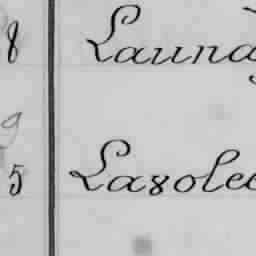 8 Launa
9
5 Lasole